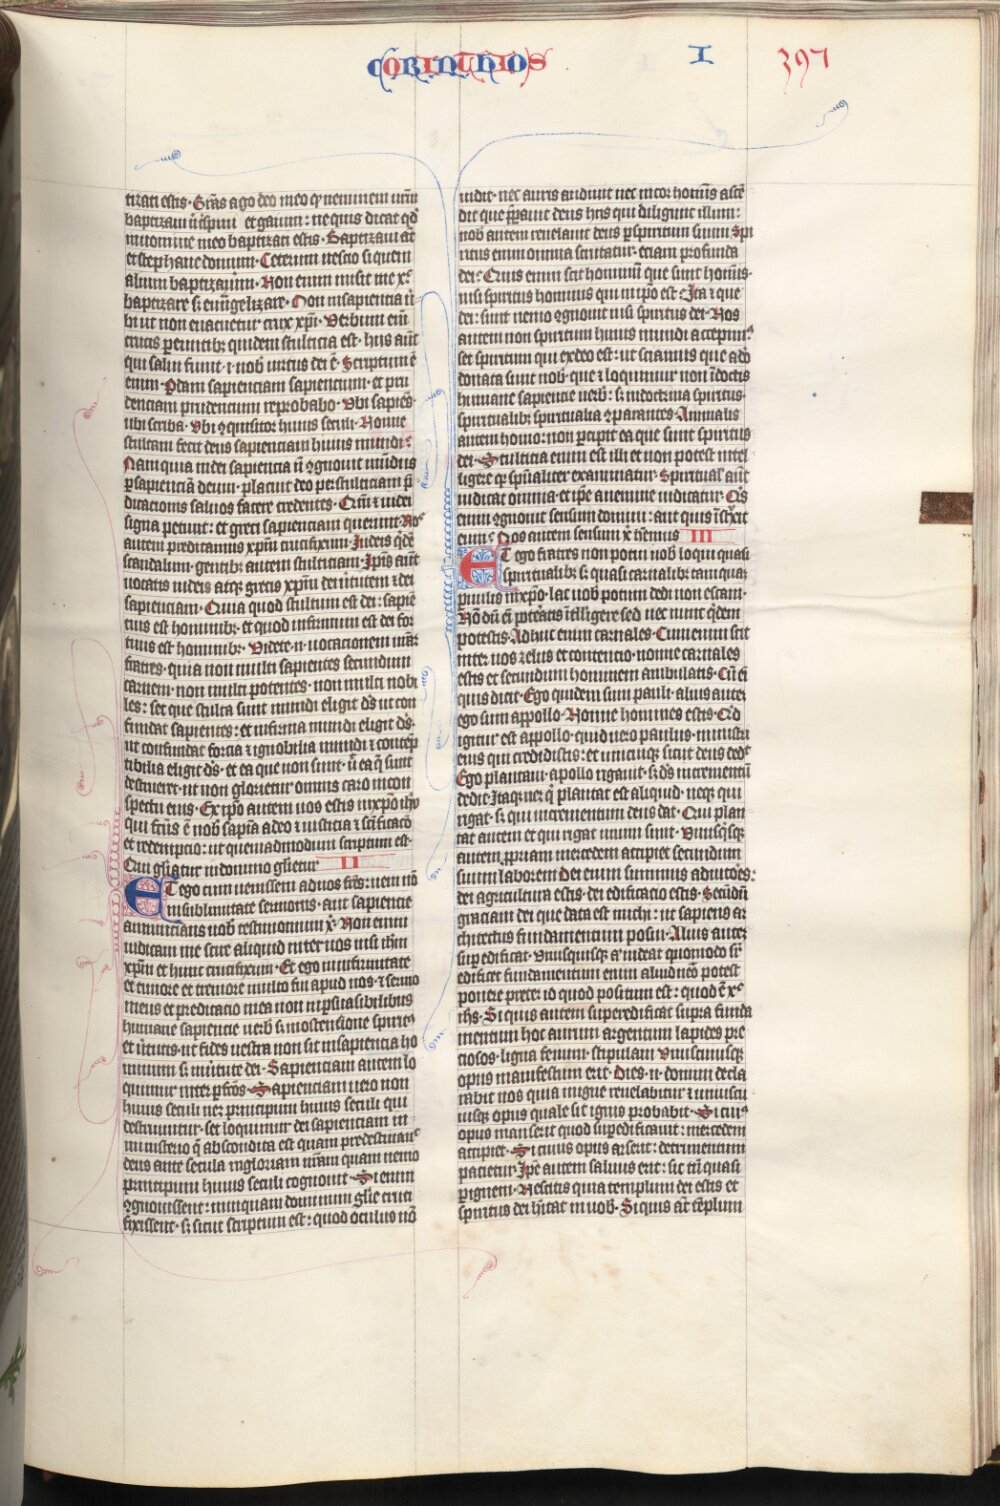 CORINTHIOS I 397
tizati estis. Grãs ago deo meo qꝫ neminem vrm̄
baptizaui n̄ crispum et gaium: ne quis dicat qd̄
in nomine meo baptizati estis. Baptizaui aūt
et stephane domum. Ceterum nescio si quem
alium baptizauim̄. Non enim misit me xp̄c
baptizare sꝫ ewāgelizare. Non in sapientia ū
bi ut non euacuetur crux xp̄i. Verbum eīm
crucis ꝑeuntibꝫ quidem stulticia est. hijs aūt
qui salui fiunt .i. nob̄ uirtus dei ē. Scriptum ē
enim. Perdam sapienciam sapiencium. et pru
denciam prudencium reprobabo. Vbi sapiens.
ubi scriba. Vbi ꝯquisitor huius seculi. Nonne
stultam fecit deus sapienciam huius mundi?
Nam quia in dei sapiencia n̄ ꝯgnouit mūdus
ꝑ sapienciā deum. placuit deo per stulticiam p̄
dicacionis saluos facere credentes. Qm̄ ⁊ iudei
signa petunt: et greci sapienciam querunt. Nos
autem predicamus xp̄m crucifixum. Iudeis qd̄ē
scandalum. gentibꝫ autem stulticiam. Ipīs aūt
uocatis iudeis atqꝫ grecis xp̄m dei uirtutem ⁊ dei
sapienciam. Quia quod stultum est dei. sapiē
cius est hominibꝫ. et quod infirmum est dei for
cius est hominibꝫ. Videte .n. uocacionem vrām
fratres. quia non multi sapientes secundum
carnem. non multi potentes. non multi nobi
les: set que stulta sunt mundi eligit ds̄ ut con
fundat sapientes: et infirma mundi eligit ds̄.
ut confundat forcia ⁊ ignobilia mundi ⁊ contēp
tibilia eligit ds̄. et ea que non sunt. ut ea q̄ sunt
destrueret. ut non glorietur omnis caro in con
spectu eius. Ex ipō autem uos estis in xp̄o ih̄u
qui fcūs ē nob̄ sapīa a deo ⁊ iusticia ⁊ scīficacō
et redempcio: ut quemadmodum scriptum est.
Qui gl̄iatur in domino gl̄ietur II
ET ego cum uenissem ad uos frēs: ueni nō
in sublimitate sermonis. aut sapiencie
annuncians uob̄ testimonium xp̄i. Non enim
iudicaui me scire aliquid inter uos nisi ih̄m
xp̄m et hunc crucifixum. Et ego in infirmitate
et timore et tremore multo fui apud uos. ⁊ sermo
meus et predicatio mea non in ꝑsuasibilibus
humane sapiencie uerb̄ sꝫ in ostensione spiritꝰ
et uirtutis. ut fides uestra non sit in sapiencia ho
minum sꝫ in uirtute dei. Sapienciam autem lo
quimur inter ꝑfcōs. Sapienciam uero non
huius seculi neqꝫ principum huius seculi qui
destruuntur. set loquimur dei sapienciam in
misterio q̄ abscondita est quam predestinauit
deus ante secula in gloriam nr̄am quam nemo
principum huius seculi cognouit. Si enim
ꝯgnouissent: numquam dominum glīe cruci
fixissent. sꝫ sicut scriptum est: quod oculus nō
uidit. nec auris audiuit nec in cor hoīnis ascē
dit que p̄parauit deus hijs qui diligunt illum:
nob̄ autem reuelauit deus ꝑ spiritum suum. Spi
ritus enim omnia scrutatur. eciam profunda
dei: Quis enim scit hominum que sunt hoīnis.
nisi spiritus hominis qui in ipō est. Ita ⁊ que
dei: sunt nemo ꝯgnouit nisi spiritus dei. Nos
autem non spiritum huius mundi accepimꝰ
set spiritum qui ex deo est: ut sciamus que a dō
donata sunt nob̄. que ⁊ loquimur non ī doctis
humane sapiencie uerb̄: sꝫ in doctrina spiritus.
spiritualibꝫ spiritualia ꝯparantes. Animalis
autem homo: non percipit ea que sunt spiritus
dei. Stulticia enim est illi et non potest intel
ligere qꝫ spūaliter examinatur. Spiritual' aūt
iudicat omnia. et ipē a nemine iudicatur. Qs̄
enim ꝯgnouit sensum domini: aut quis īstruxit
eum? Nos autem sensum xp̄i hēmus III
ET ego fratres non potui uob̄ loqui quasi
spiritualibꝫ sꝫ quasi carnalibꝫ. tamquam
paruulis in xp̄o. lac uob̄ potum dedi non escam.
Nōdū eī poteratis ītelligere sed nec nunc qd̄em
potestis. Adhuc enim carnales. Cum enim sit
inter uos zelus et contencio. nonne carnales
estis et secundum hominem ambulatis. Cū eī
quis dicit. Ego quidem sum pauli. alius autem
ego sum appollo. Nonne homines estis. Qd̄
igitur est appollo. quid uero paulus. ministri
eius qui credidistis: et unicuiqꝫ sicut deus dedit
Ego plantaui. apollo rigauit. sꝫ ds̄ incrementū
dedit. Itaqꝫ neqꝫ q̄ plantat est aliquid. neqꝫ qui
rigat. sꝫ qui incrementum deus dat. Qui plan
tat autem et qui rigat unum sunt. Vnusqꝫsqꝫ
autem ꝓpriam mercedem accipiet secundum
suum laborem Dei enim sumus adiutores:
dei agricultura estis. dei edificatio estis. Secūdū
graciam dei que data est michi: ut sapiens ar
chitectus fundamentum posui. Alius autem
superedificat. Vnusquisqꝫ aūt uideat quomodo suꝑ
edificet fundamentum enim aliud nēo potest
ponere preter id quod positum est: quod ē xp̄c
ih̄s. Si quis autem superedificat supra funda
mentum hoc aurum argentum lapides pre
ciosos. ligna fenum. stipulam Vniuscuiusqꝫ
opus manifestum erit. Dies .n. domini decla
rabit nos quia in igne reuelabitur ⁊ uniuscu
iusqꝫ opus quale sit ignis probabit. Si cuiꝰ
opus manserit quod superedificauit: mercedem
accipiet. Si cuius opus arserit: detrimentum
pacietur. Ipē autem saluus erit: sic tn̄ quasi
ꝑ ignem. Nescitis quia templum dei estis et
spiritus dei hītat in uob̄. Si quis aūt tēplum